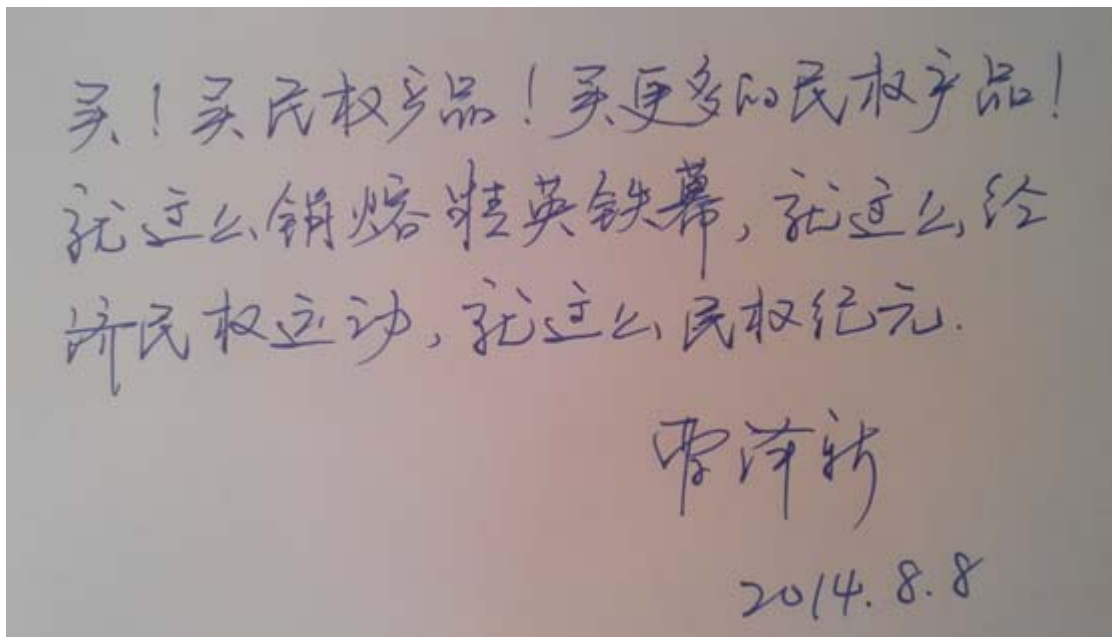 买！买民权产品！买更多的民权产品！
就这么销熔精英铁幕，就这么经
济民权运动，就这么民权纪元.
曹泽新
2014.8.8